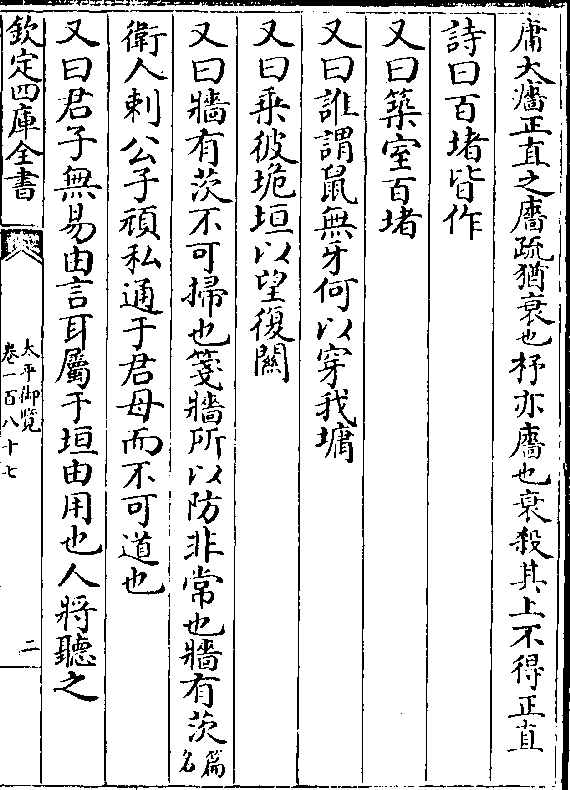 庸大墻正直之墻疏猶衰也杼亦墻也衰殺其上不得正直
詩曰百堵皆作
又曰築室百堵
又曰誰謂䑕無牙何以穿我墉
又曰乗彼垝垣以望復闗
又曰牆有茨不可掃也箋牆所以防非常也牆有茨篇名
衛人刺公子頑私通于君母而不可道也
又曰君子無易由言耳屬于垣由用也人將聽之
欽定四庫全書
太平御覽
卷一百八十七
二